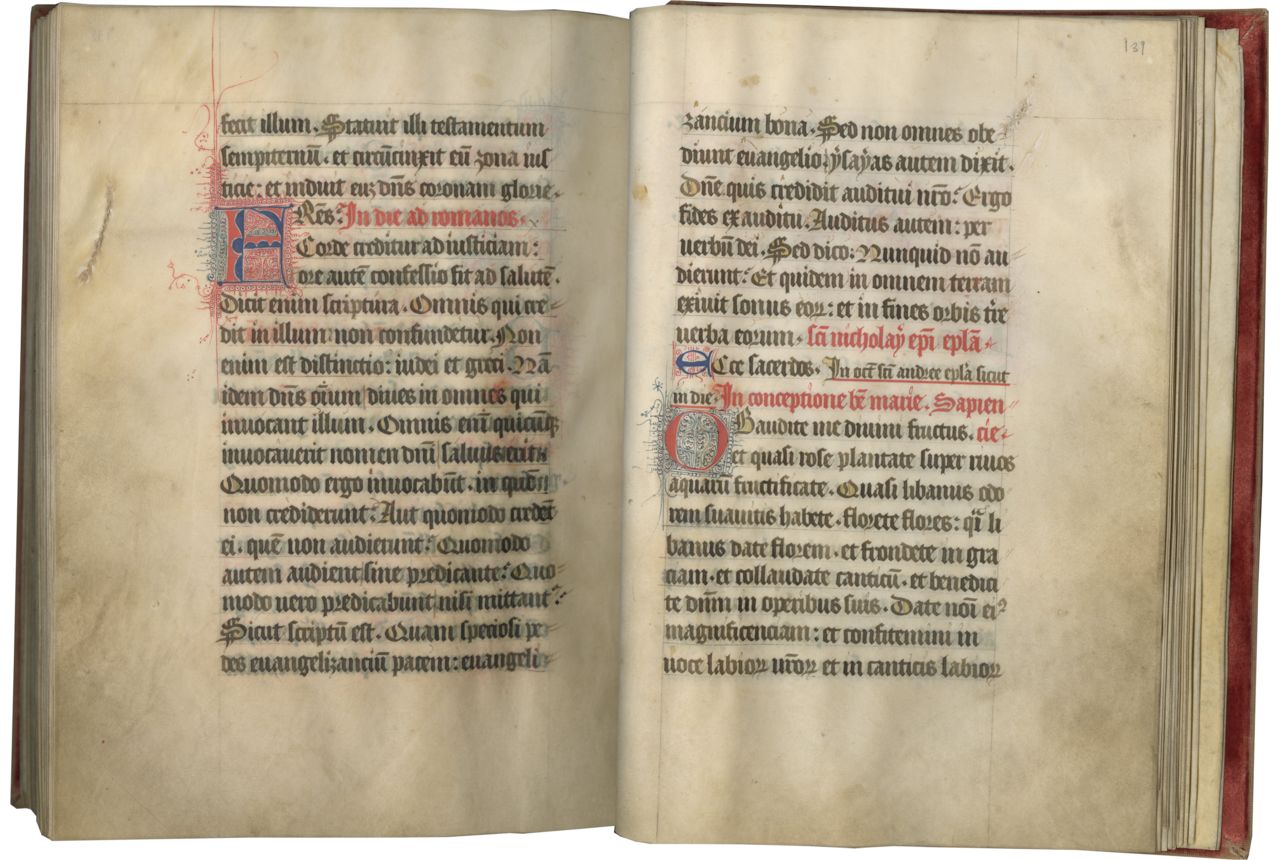 fecit illum. Statuit illi testamentum
sempiternū. et circūcinxit eū zona ius
ticie: et induit euz dn̄s coronam glorie.
FRēs: In die ad romanos.
Corde creditur ad iusticiam:
ore autē confessio fit ad salutē.
Dicit enim scriptura. Omnis qui cre
dit in illum non confundetur. Non
enim est distinctio: iudei et greci. Nā
idem dn̄s om̄ium diues in omnes qui
inuocant illum. Omnis enī quicūqꝫ
inuocauerit nomen dn̄i saluus erit.
Quomodo ergo inuocabūt. in quē
non crediderunt: Aut quomodo credēt
ei. quē non audierunt: Quomodo
autem audient sine predicante: Quo
modo uero predicabunt nisi mittant᷑:
Sicut scriptū est. Quam speciosi pe
des euangelizanciū pacem: euangeli
139
zancium bona. Sed non omnes obe
diunt euangelio: ysayas autem dixit.
Dn̄e quis credidit auditui nr̄o: Ergo
fides ex auditu. Auditus autem: per
uerbū dei. Sed dico: Nunquid nō au
dierunt: Et quidem in omnem terram
exiuit sonus eoꝝ: et in fines orbis tr̄e
uerba eorum. sc̄i nicholay ep̄i ep̄la.
Ecce sacerdos. In oct̄ sc̄i andree ep̄la sicut
in die. In conceptione bē marie. Sapien
OBaudite me diuini fructus. cie.
et quasi rose plantate super riuos
aquarū fructificate. Quasi libanus odo
rem suauitis habete. florete flores: q̄i li
banus date florem. et frondete in gra
ciam. et collaudate canticū. et benedici
te dn̄m in operibus suis. Date nōi eiꝰ
magnificenciam: et confitemini in
uoce labioꝝ ur̄oꝝ et in canticis labioꝝ